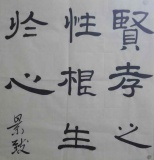 賢孝之
性根生
於心
景致